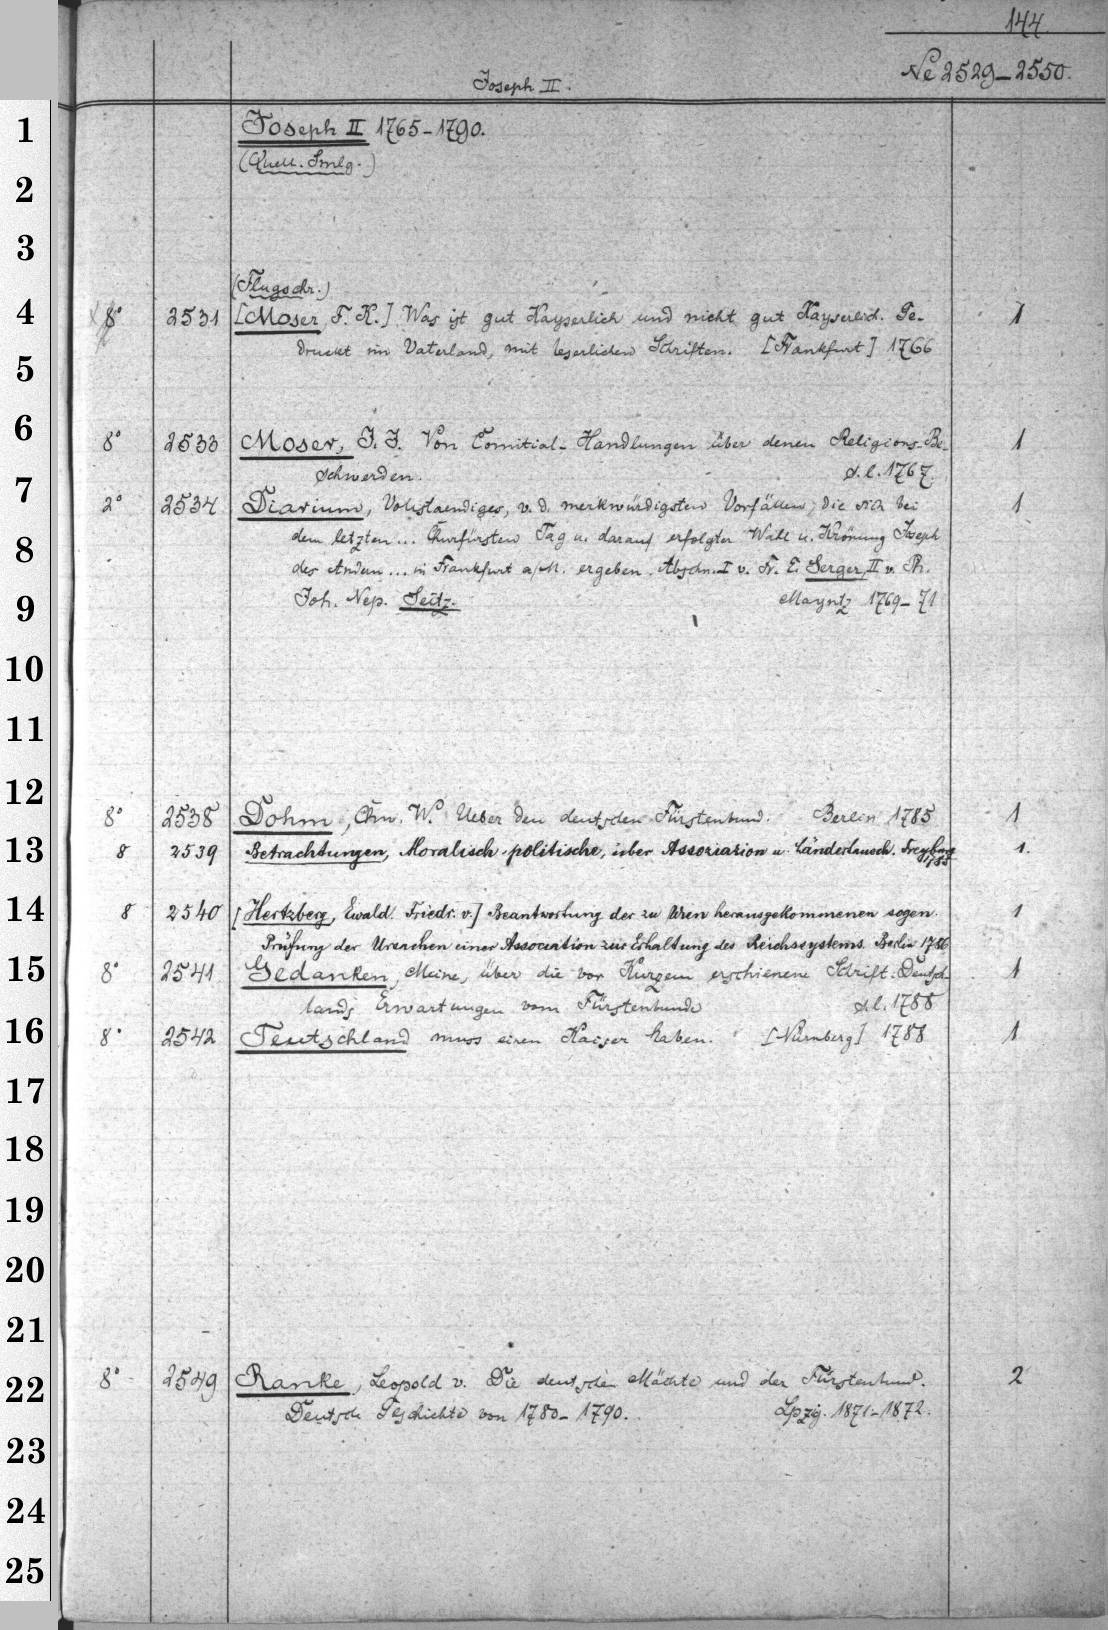 144
Ne 2529-2550.
Joseph II.
1
Joseph II 1765-1790.
(Quell. Smlg.)
2
3
(Flugschr.)
4
8° 2531 [Moser, F. K.] Was ist gut Kayserlich und nicht gut Kayserlich. Ge- 1
druckt im Vaterland, mit leserlichen Schriften. [Frankfurt] 1766
5
6
8° 2533 Moser, J. J. Von Comitial-Handlungen über denen Religions-Be- 1
schwerden. s.l. 1767.
7
2° 2534 Diarium, Vollstaendiges, v. d. merkwürdigsten Vorfällen, die sich bei 1
dem letzten ... Churfürsten Tag u. darauf erfolgter Wahl u. Krönung Joseph
8
des Andern ... in Frankfurt a/M. ergeben. Abschn. I v. Fr. E. Serger, II v. Ph.
9
Joh. Nep. Seitz. Mayntz 1769-71
10
11
12
8° 2538 Dohm, Chn. W. Ueber den deutschen Fürstenbund. Berlin 1785 1
13
8 2539 Betrachtungen, Moralisch-politische, über Association u. Ländertausch. Freyburg 1.
1785
14
8 2540 [Hertzberg, Ewald Friedr. v.] Beantwortung der zu Wien herausgekommenen sogen. 1
Prüfung der Ursachen einer Association zur Erhaltung des Reichssystems. Berlin 1786
15
8° 2541 Gedanken, Meine, über die vor Kurzem erschienene Schrift: Deutsch- 1
lands Erwartungen vom Fürstenbunde s.l. 1788
16
8° 2542 Teutschland muss einen Kaiser haben. [Nürnberg] 1788 1
17
18
19
20
21
22
8° 2549 Ranke, Leopold v. Die deutschen Mächte und der Fürstenbund. 2
Deutsche Geschichte von 1780-1790. Lpzig. 1871-1872.
23
24
25